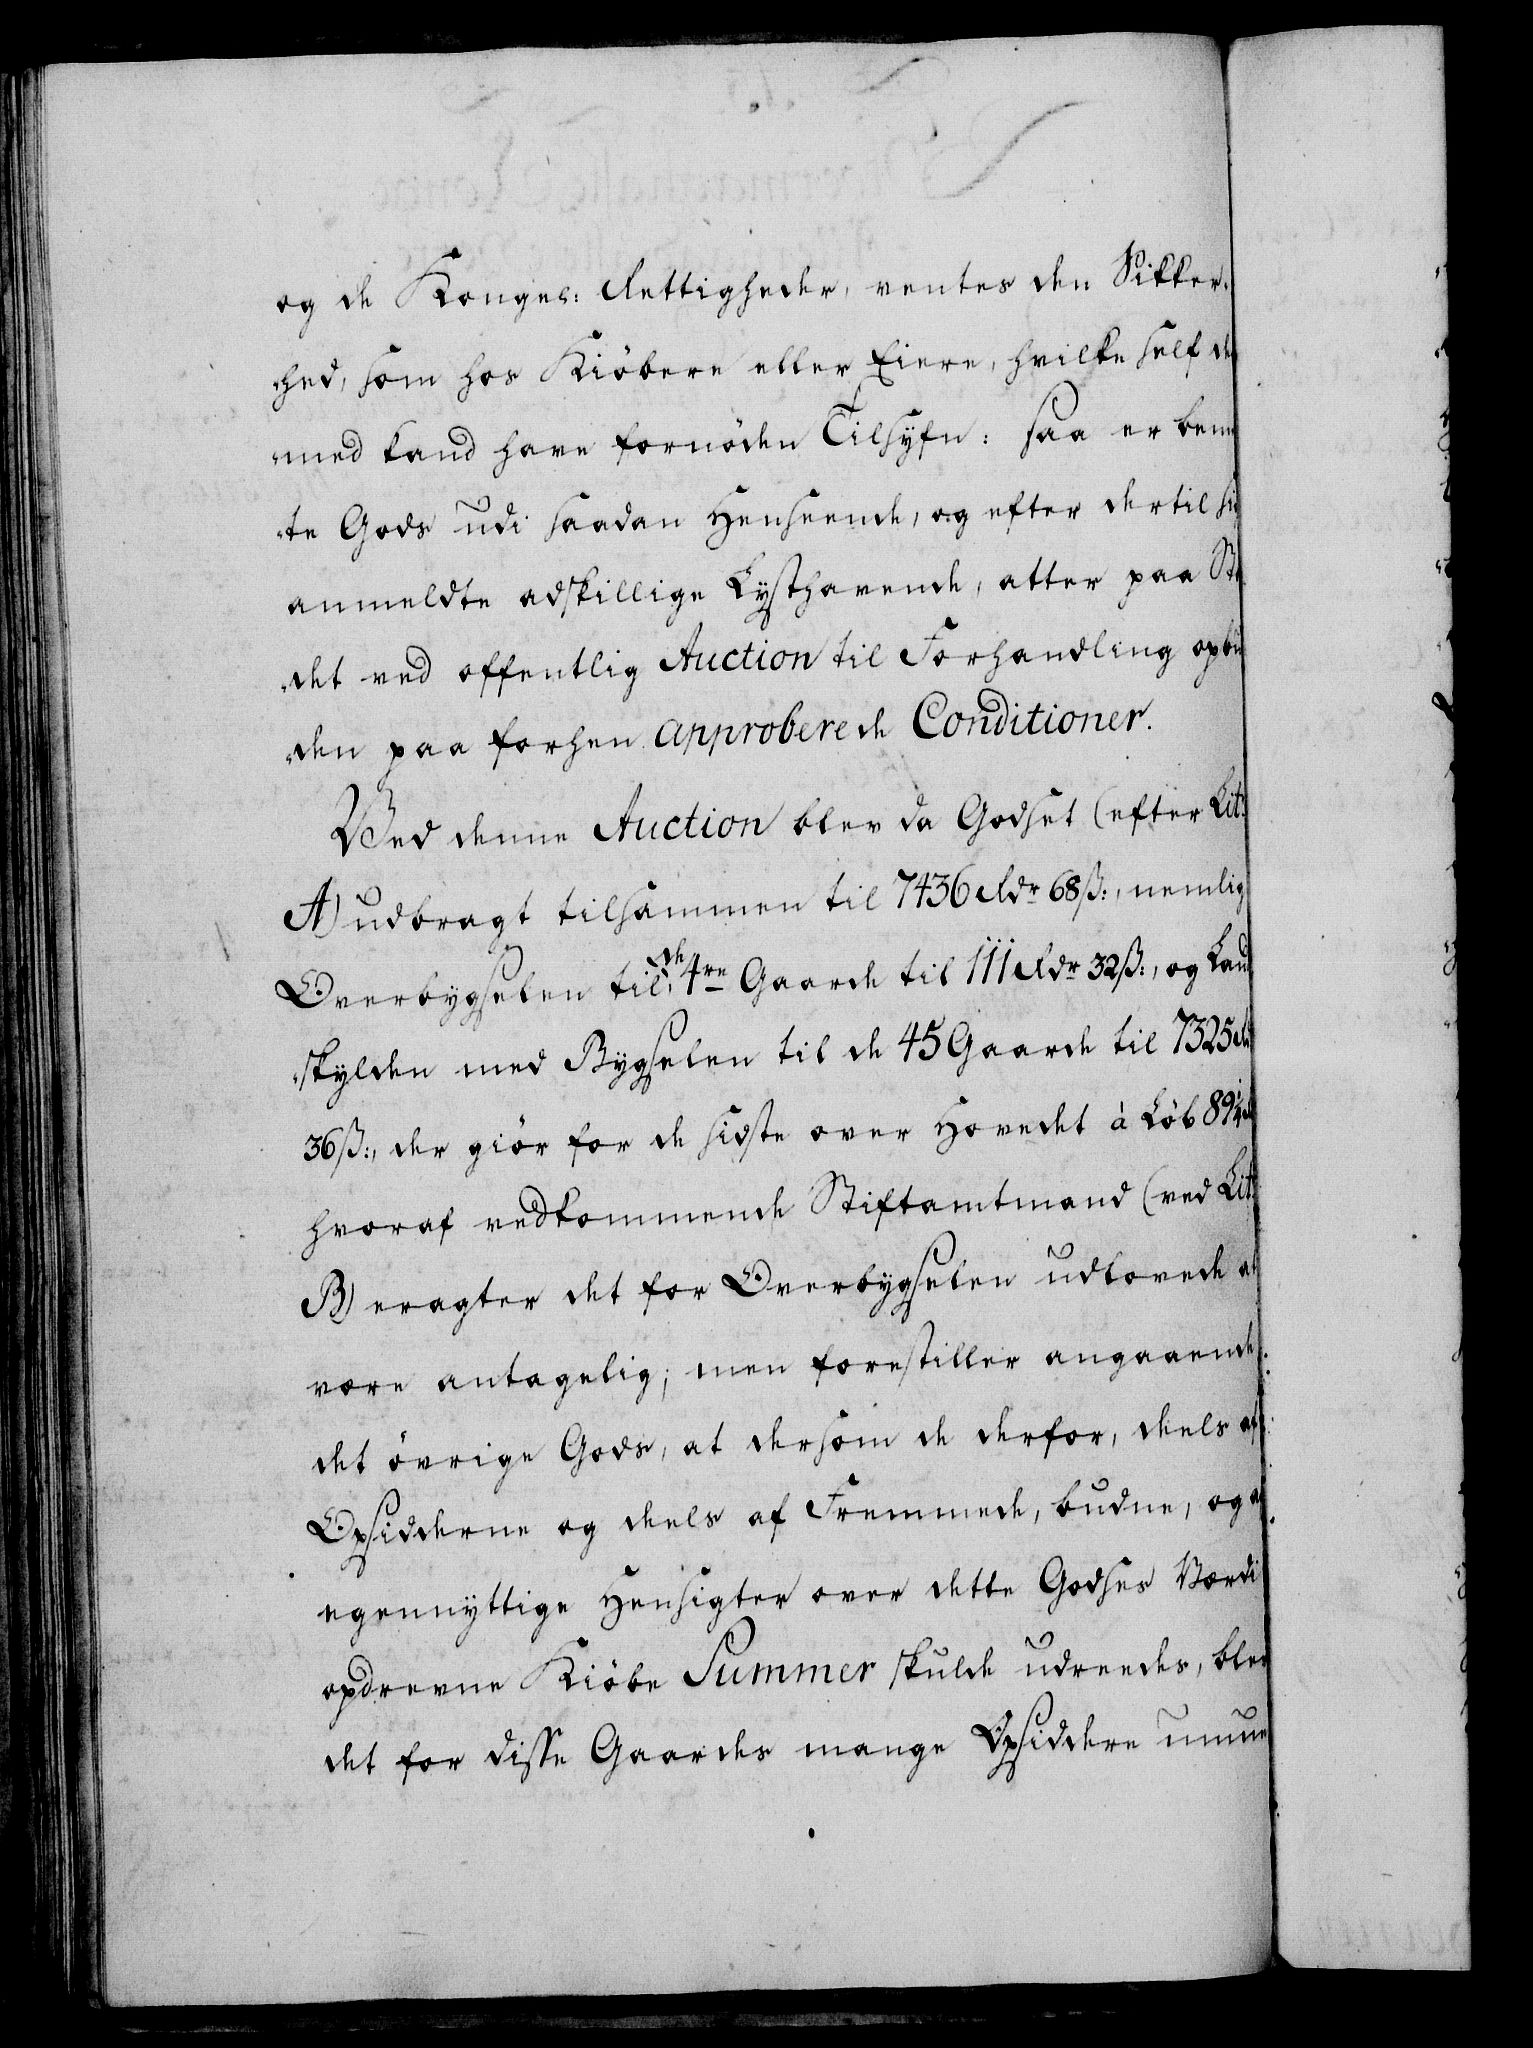 og de Kongel: Rettigheder, ventes den Sikker-
-hed, som hos Kiöbere eller Eiere, hvilke self der
-med kand have fornöden Tilsyfn: saa er bem
-te Gods udi saadan Henseende, og efter dertil sig
anmeldte adskillige Lysthavende, atter paa Ste
-det ved offentlig Auction til Forhandling opbü
-den paa forhen approberede Conditioner.
Wed denne Auction blev da Godset (efter Lit:
A) udbragt tilsammen til 7436 Rdr 68 ß:, nemlig
Overbygselen til de 4re Gaarde til 111 Rdr 32 ß:, og Land
-skylden med Bygselen til de 45 Gaarde til 7325 Rd
36 ß:, der giör for de sidste over Hovedet à Löb 89 1/4 Rd
hvoraf vedkommende Stiftamtmand (ved Lit:
B) eragter det for Overbygselen udlovede at
være antagelig; men forestiller angaaende
det övrige Gods, at dersom de derfor, deels af
Opsidderne og deels af Fremmede, budne, og af
egennyttige Hensigter over dette Godses Værdi
opdrevne Kiöbe Summer skulde udreedes, blev
det for disse Gaardes mange Opsiddere umue